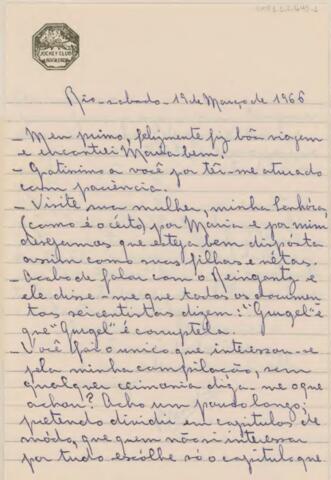 JOCKEY CLUB
Rio-sabado-19 de Março de 1966
- Meu primo, felizmente fiz bôa viagem
e encontrei Maria bem.
- Gratissimo a você por têr-me aturado
com paciência.
- Visite sua mulher, minha Senhora
(como é o cérto) por Maria e por mim
desejamos que esteja bem dispósta
assim como suas filhas e nétas.
- Acabo de falar com o Reingantz e
ele disse-me que todos os documen-
tos seicentistas dizem: "Gurgel" e
que "Gugel" é corruptela.
- Você foi o unico que interessou-se
pela minha compilação, sem
qualquer cerimonia diga-me o que
achou? Acho um pouco longo;
pretendo dividir em capitulos de
módo, que quem não si interessar
por tudo escôlhe só o capitulo que